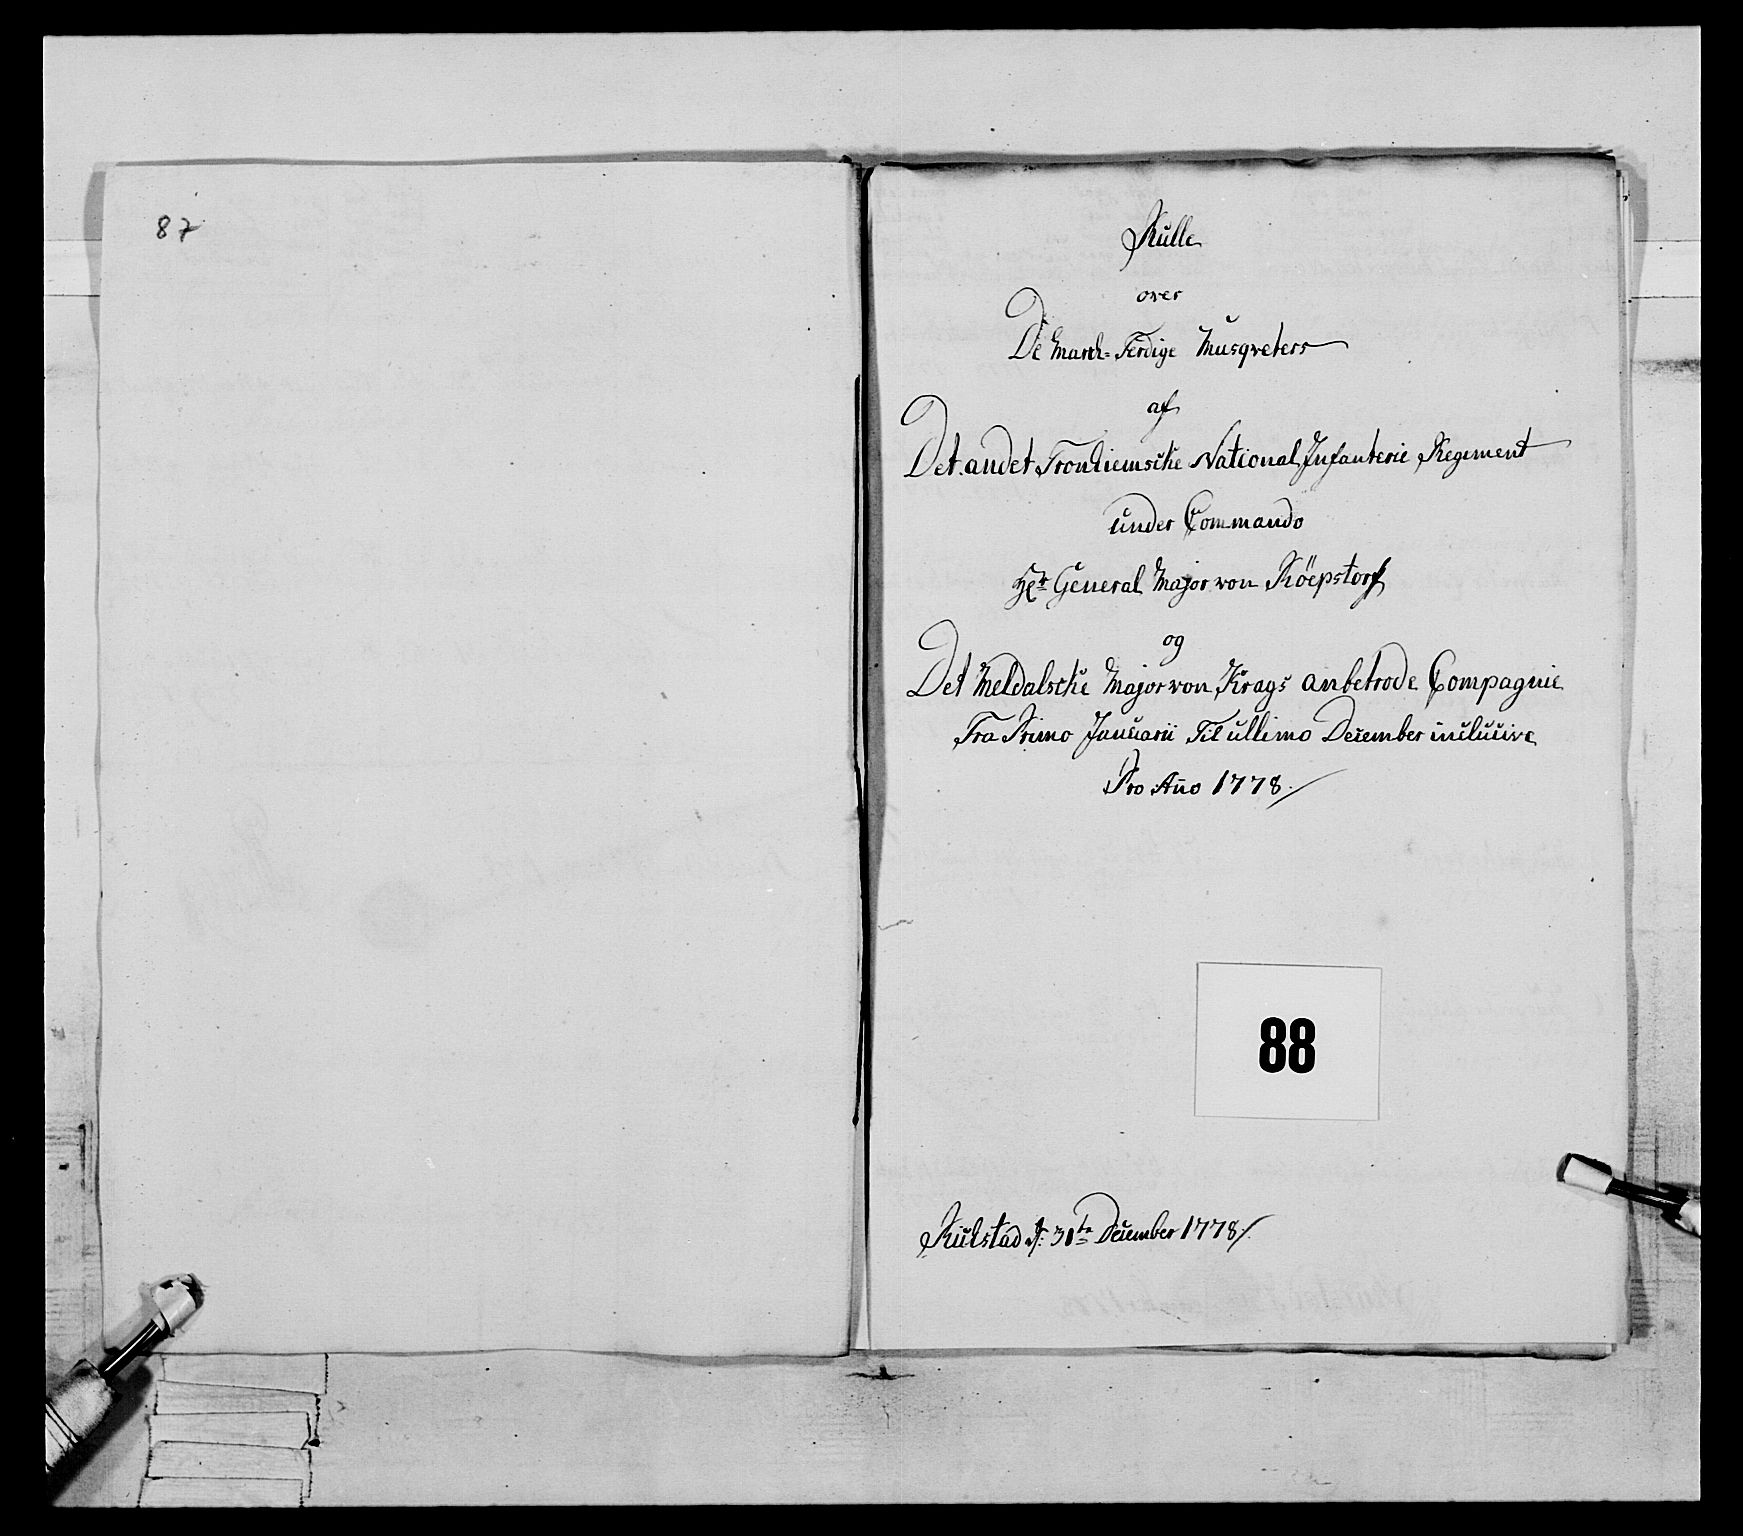 87
Rulle
over
De March-Ferdige Musqveters
af
Det andet Tronhiemske National Infanterie Regiment
under Commando
Hr General Major von Röepstorf
og
Det Meldalske Major von Krags anbetrode Compagnie
Fra Primo Januarii Til ultimo December inclucive
Pro Año 1778./
88
d: 31te December 1778/.